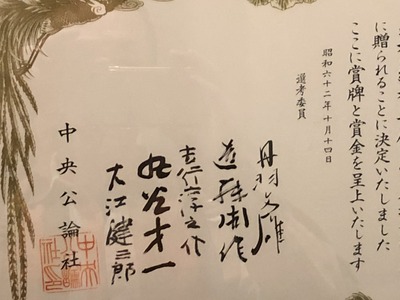 に贈られることに決定いたしました
ここに賞牌と賞金を呈上いたします
昭和六十二年十月十四日
選考委員
丹羽文雄
遠藤周作
吉行淳之介
丸谷才一
大江健三郎
中央公論社